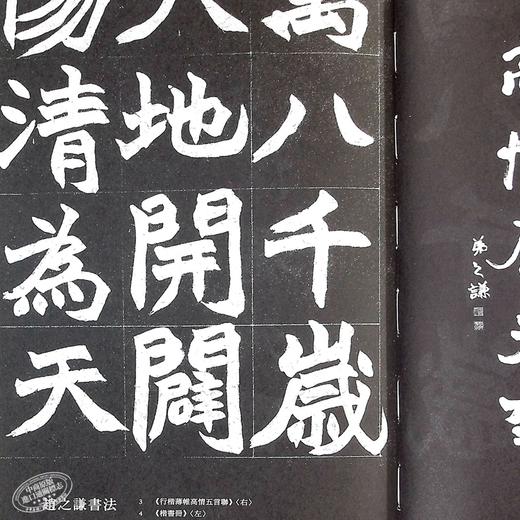 弟之謙
萬八千歲
地開闢
清為天
趙之謙書法
3 《行楷薄帷高情五言聯》〈右〉
4 《楷書冊》〈左〉
中商原版